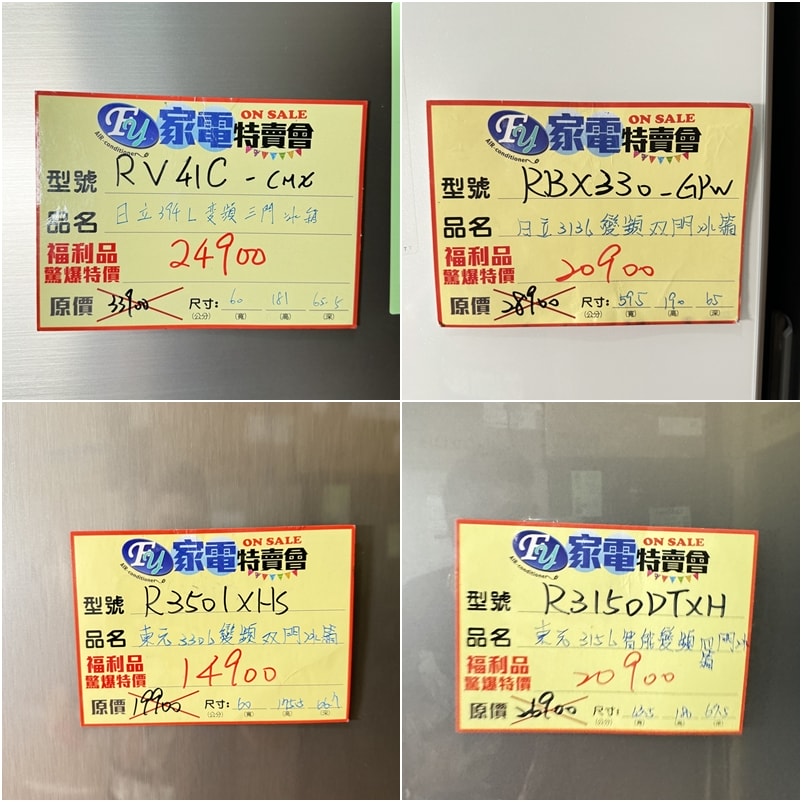 ON SALE
Fy 家電特賣會
AIR-conditioner
型號 RV41C-CMX
品名 日立394L變頻三門冰箱
福利品
驚爆特價 24900
原價 33900 尺寸: 60 181 65.5
(公分) (寬) (高) (深)
ON SALE
Fy 家電特賣會
AIR-conditioner
型號 RBX330-GPW
品名 日立313L變頻双門冰箱
福利品
驚爆特價 20900
原價 28900 尺寸: 59.5 190 65
(公分) (寬) (高) (深)
ON SALE
Fy 家電特賣會
AIR-conditioner
型號 R3501XHS
品名 東元330L變頻双門冰箱
福利品
驚爆特價 14900
原價 19900 尺寸: 60 175.5 66.7
(公分) (寬) (高) (深)
ON SALE
Fy 家電特賣會
AIR-conditioner
型號 R3150DTXH
品名 東元315L智能變頻四門冰箱
福利品
驚爆特價 20900
原價 26900 尺寸: 180 67.5
(公分) (寬) (高) (深)